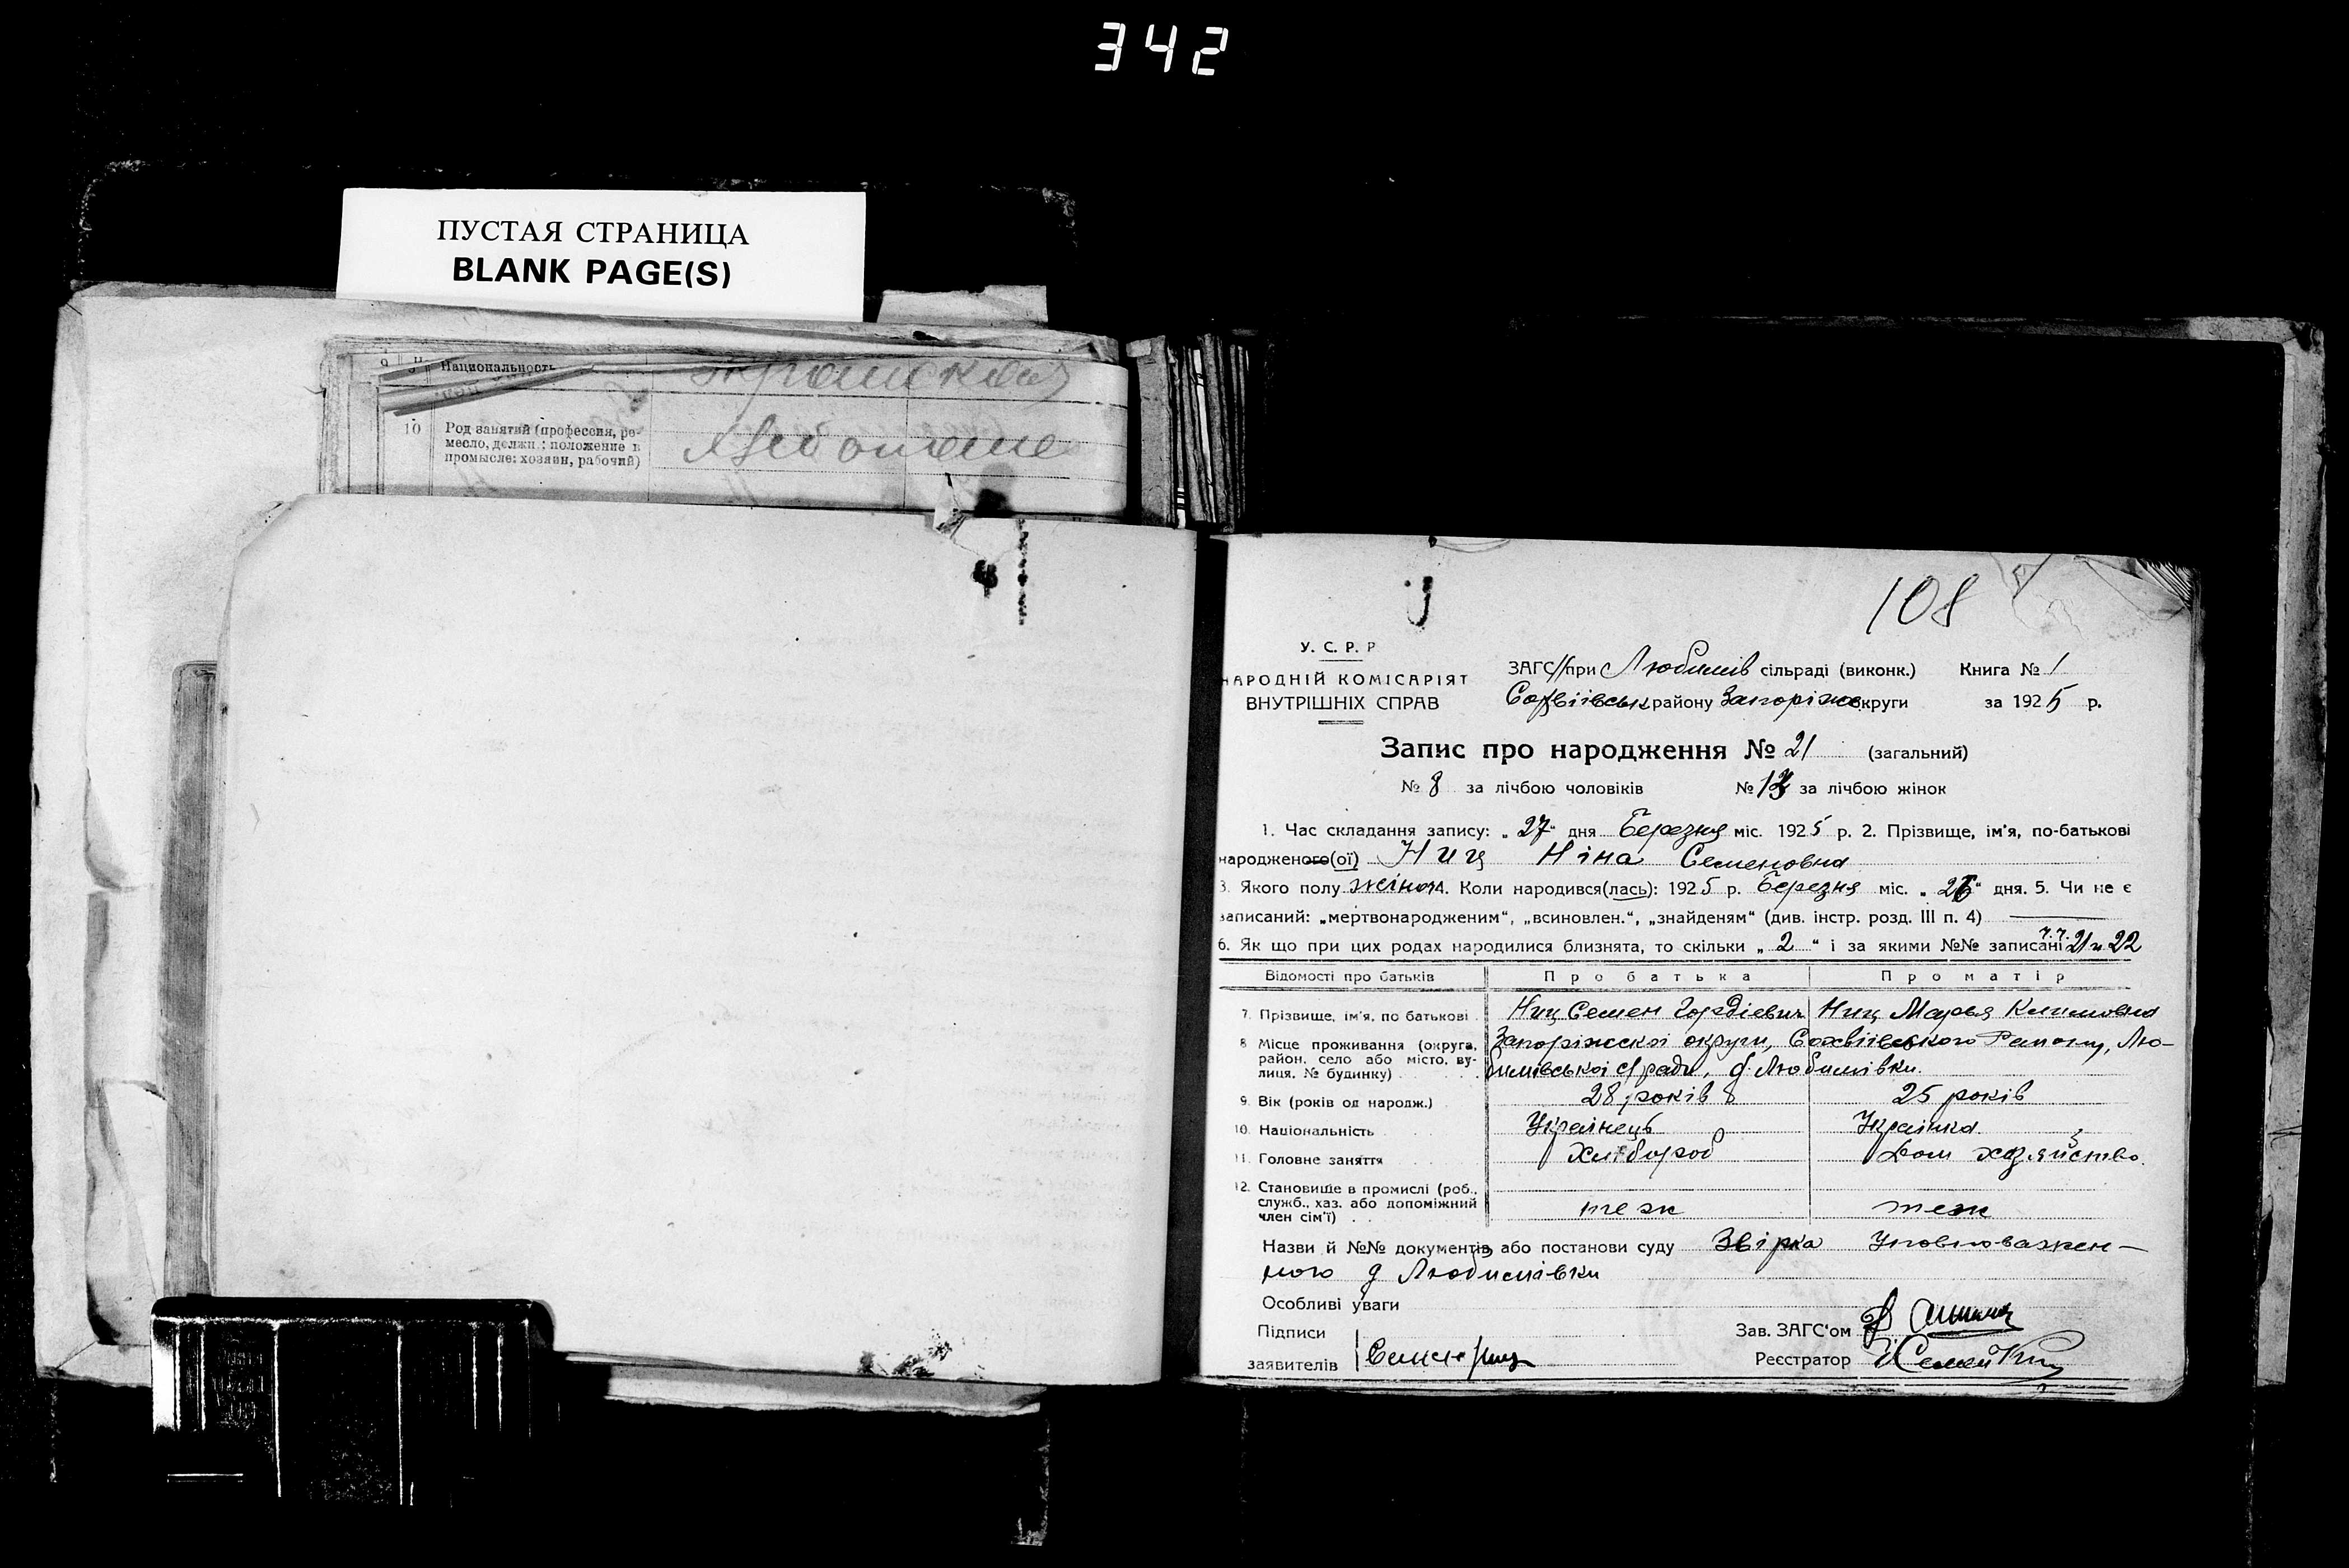 342
ПУСТАЯ СТРАНИЦА
BLANK PAGE(S)
Национальность
10 Род занятий (профессия, ре-
месло, должн.: положение в
промысле: хозяин, рабочий)
108
У. С. Р. Р
НАРОДНІЙ КОМІСАРІЯТ
ВНУТРІШНІХ СПРАВ
ЗАГС при Любимів сільраді (виконк.) Книга № 1
Софіївськ району Запоріжс округи за 1925 р.
Запис про народження № 21 (загальний)
№ 8 за лічбою чоловіків № 13 за лічбою жінок
1. Час складання запису: „27“ дня Березня міс. 1925 р. 2. Прізвище, ім'я, по-батькові
народженого(ої) Ниц Ніна Семеновна
3. Якого полу жіноч. 4. Коли народився(лась): 1925 р. Березня міс. „26“ дня. 5. Чи не є
записаний: „мертвонародженим“, „всиновлен.“, „знайденям“ (див. інстр. розд. III п. 4)
6. Як що при цих родах народилися близнята, то скільки „2“ і за якими №№ записані ч.ч. 21 и 22
Відомості про батьків Про батька Про матір
7. Прізвище, ім'я, по батькові Ниц Семен Гордіевич Ниц Марья Климовна
8 Місце проживання (округа,
район, село або місто, ву-
лиця, № будинку)
Запоріжскоі округи, Софіївського Району, Лю-
бимівськоі с/ради, д. Любимівки.
9. Вік (років од народж.) 28 років 25 років
10. Національність Українець Українка
11. Головне заняття Хлібороб Дом хозяйство.
12. Становище в промислі (роб.,
служб., хаз. або допоміжний
член сім'ї)
теж теж
Назви й №№ документів або постанови суду Звірка Уповноважен-
ного д Любимівки
Особливі уваги
Підписи
заявителів Семен Ниц
Зав. ЗАГС'ом
Реєстратор